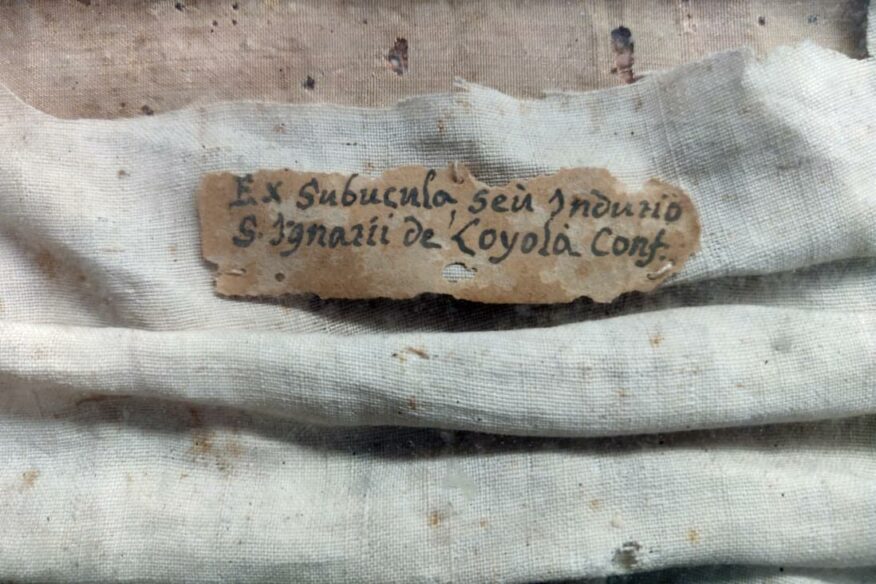 Ex Subucula, seù Indusio
S. Ignatii de Loyola Conf.